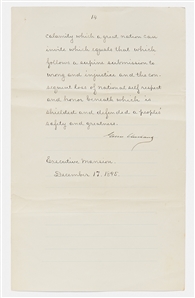 14
calamity which a great nation can
invite which equals that which
follows a supine submission to
wrong and injustice and the con-
sequent loss of national self respect
and honor beneath which is
shielded and defended a people's
safety and greatness.
Grover Cleveland
Executive Mansion
December 17, 1895.